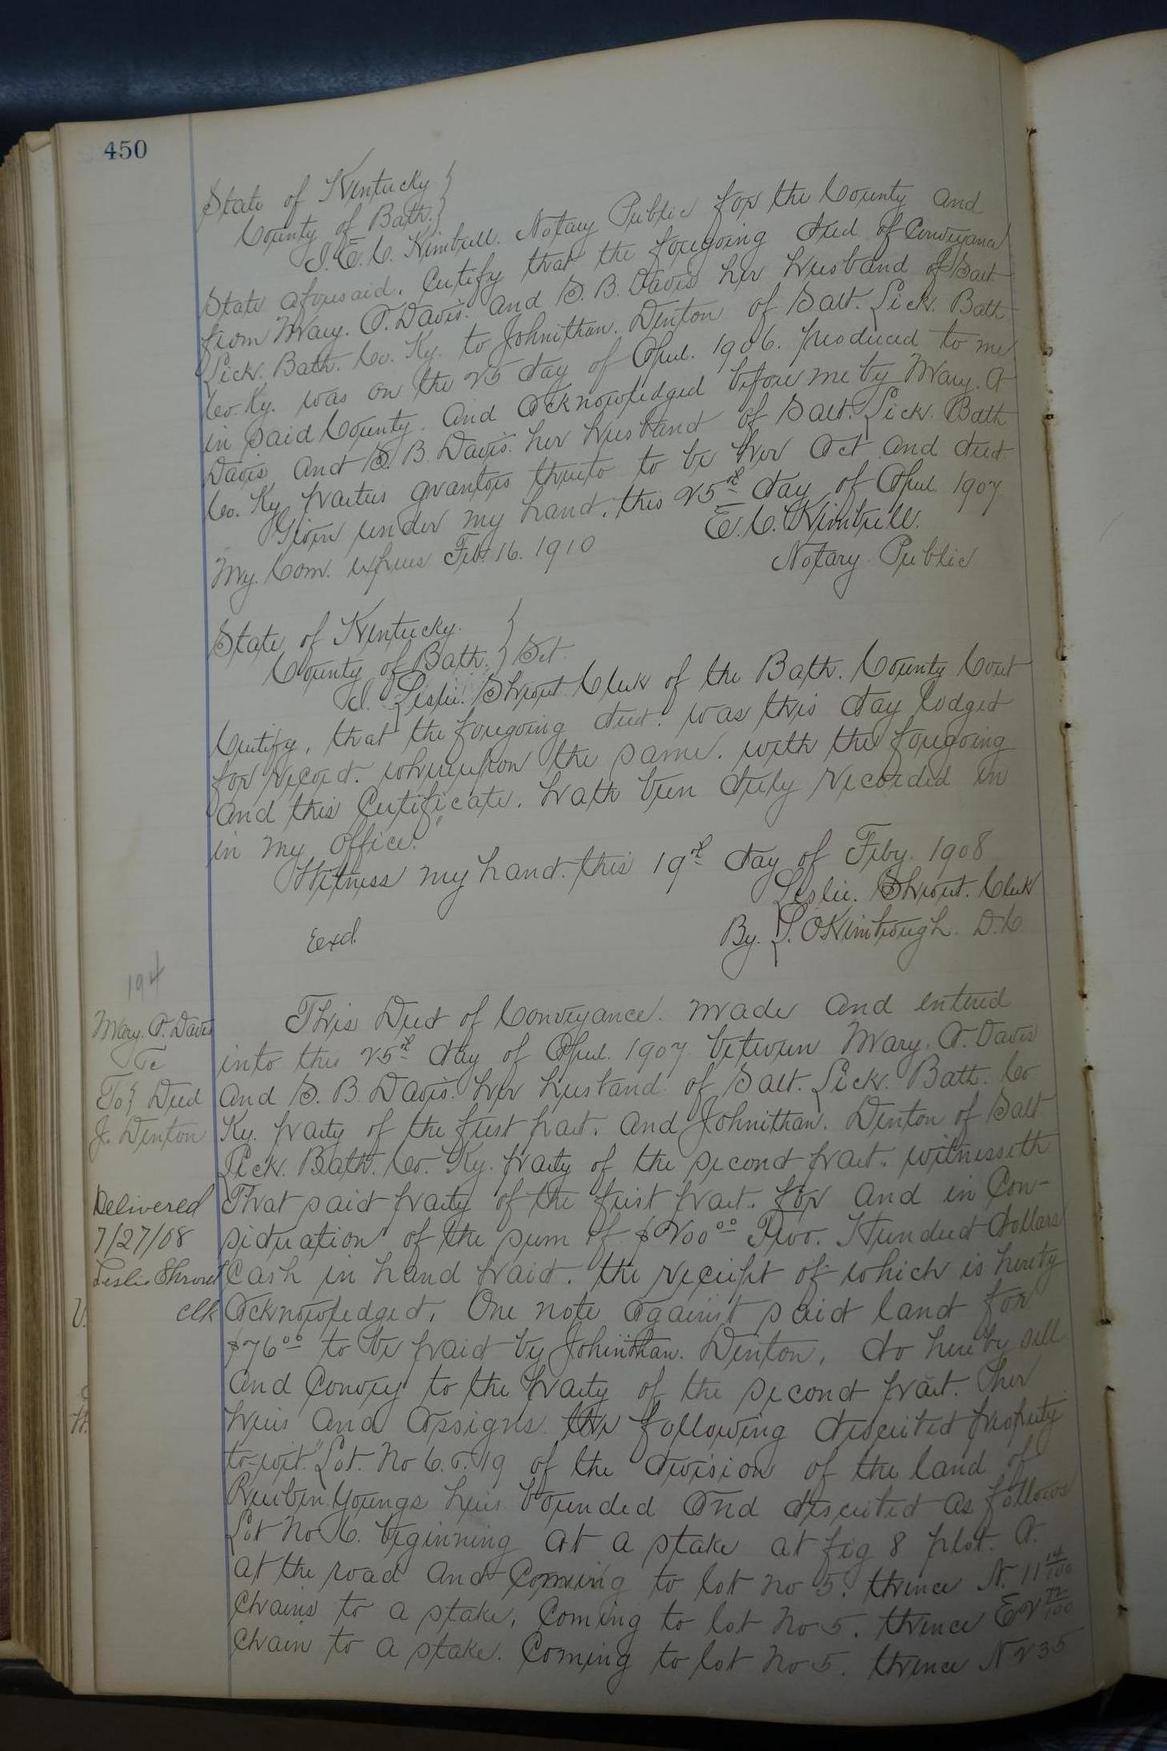 450
State of Kentucky }
County of Bath. }
I. E. C. Kimbrell. Notary Public for the County and
State aforesaid. Certify that the foregoing deed of Conveyance
from Mary. A. Davis. and S. B. Davis her husband of Salt
Lick. Bath. Co. Ky. to Johnithan. Denton of Salt. Lick. Bath
Co. Ky. was on the 25 day of Apul. 1906. produced to me
in said County. and acknowledged before me by Mary. A
Davis and S. B. Davis. her husband of Salt. Lick. Bath
Co. Ky parties grantors thereto to be her act and deed
Given under my hand. this 25th day of Apul 1907
E. C. Kimbrell.
My. Com. expires Feb. 16. 1910
Notary Public
State of Kentucky. }
County of Bath. } Sct.
I. Leslie. Shrout Clerk of the Bath. County Court
Certify, that the foregoing deed. was this day lodged
for record. whereupon the same. with the foregoing
and this Certificate. hath been duly recorded in
in my office."
Witness my hand. this 19th day of Feby. 1908
Leslie. Shrout. Clerk
Exd.
By. L. O Kimbrough. D.C.
194
Mary. A. Davis
To } Deed
J. Denton
Delivered
7/27/08
Leslie Shrout
Clk
This Deed of Conveyance. made and entered
into this 25th day of Apul. 1907 between Mary. A. Davis
and S. B Davis. her husband of Salt. Lick. Bath. Co
Ky. party of the first part. and Johnithan. Denton of Salt
Lick. Bath. Co. Ky. party of the second part. witnesseth
That said party of the first part. for and in Con-
sideration of the sum of $200°° Two. Hundred dollars
Cash in hand paid. the receipt of which is hereby
acknowledged. One note against said land for
$76°° to be paid by Johnithan. Denton, do hereby sell
and Convey to the party of the second part. her
heirs and assigns the following described property
to-wit." Lot. No 6. & 19 of the division of the land of
Reuben Youngs heirs bounded and described as follows
Lot No 6. beginning at a stake at fig 8 plot. A.
at the road and Corning to lot no 5. thence N. 11 14/100
Chains to a stake, Corning to lot No 5. thence E 2 72/100
Chain to a stake. Corning to lot No 5. thence N 235